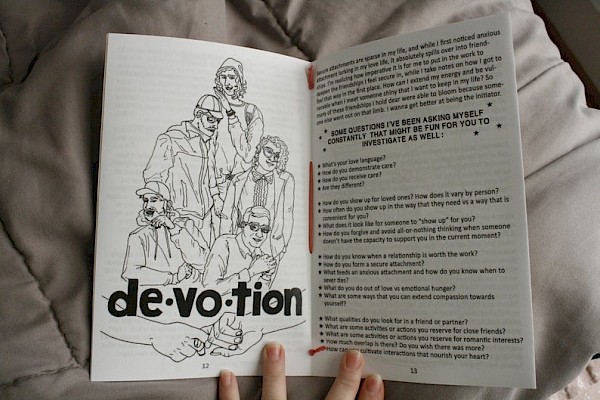 de•vo•tion
12
attachments are sparse in my life, and while I first noticed anxious
attachment lurking in my love life, it absolutely spills over into friend-
ships. I'm realizing how imperative it is for me to put in the work to
deepen the friendships I feel secure in, while I take notes on how I got to
feel that way in the first place. How can I extend my energy and be vul-
nerable when I meet someone shiny that I want to keep in my life? So
many of these friendships I hold dear were able to bloom because some-
one else went out on that limb. I wanna get better at being the initiator.
SOME QUESTIONS I'VE BEEN ASKING MYSELF
CONSTANTLY THAT MIGHT BE FUN FOR YOU TO
INVESTIGATE AS WELL:
★ What's your love language?
★ How do you demonstrate care?
★ How do you receive care?
★ Are they different?
★ How do you show up for loved ones? How does it vary by person?
★ How often do you show up in the way that they need vs a way that is
convenient for you?
★ What does it look like for someone to "show up" for you?
★ How do you forgive and avoid all-or-nothing thinking when someone
doesn't have the capacity to support you in the current moment?
★ How do you know when a relationship is worth the work?
★ How do you form a secure attachment?
★ What feeds an anxious attachment and how do you know when to
sever ties?
★ What do you do out of love vs emotional hunger?
★ What are some ways that you can extend compassion towards
yourself?
★ What qualities do you look for in a friend or partner?
★ What are some activities or actions you reserve for close friends?
★ What are some activities or actions you reserve for romantic interests?
★ How much overlap is there? Do you wish there was more?
★ How can cultivate interactions that nourish your heart?
13